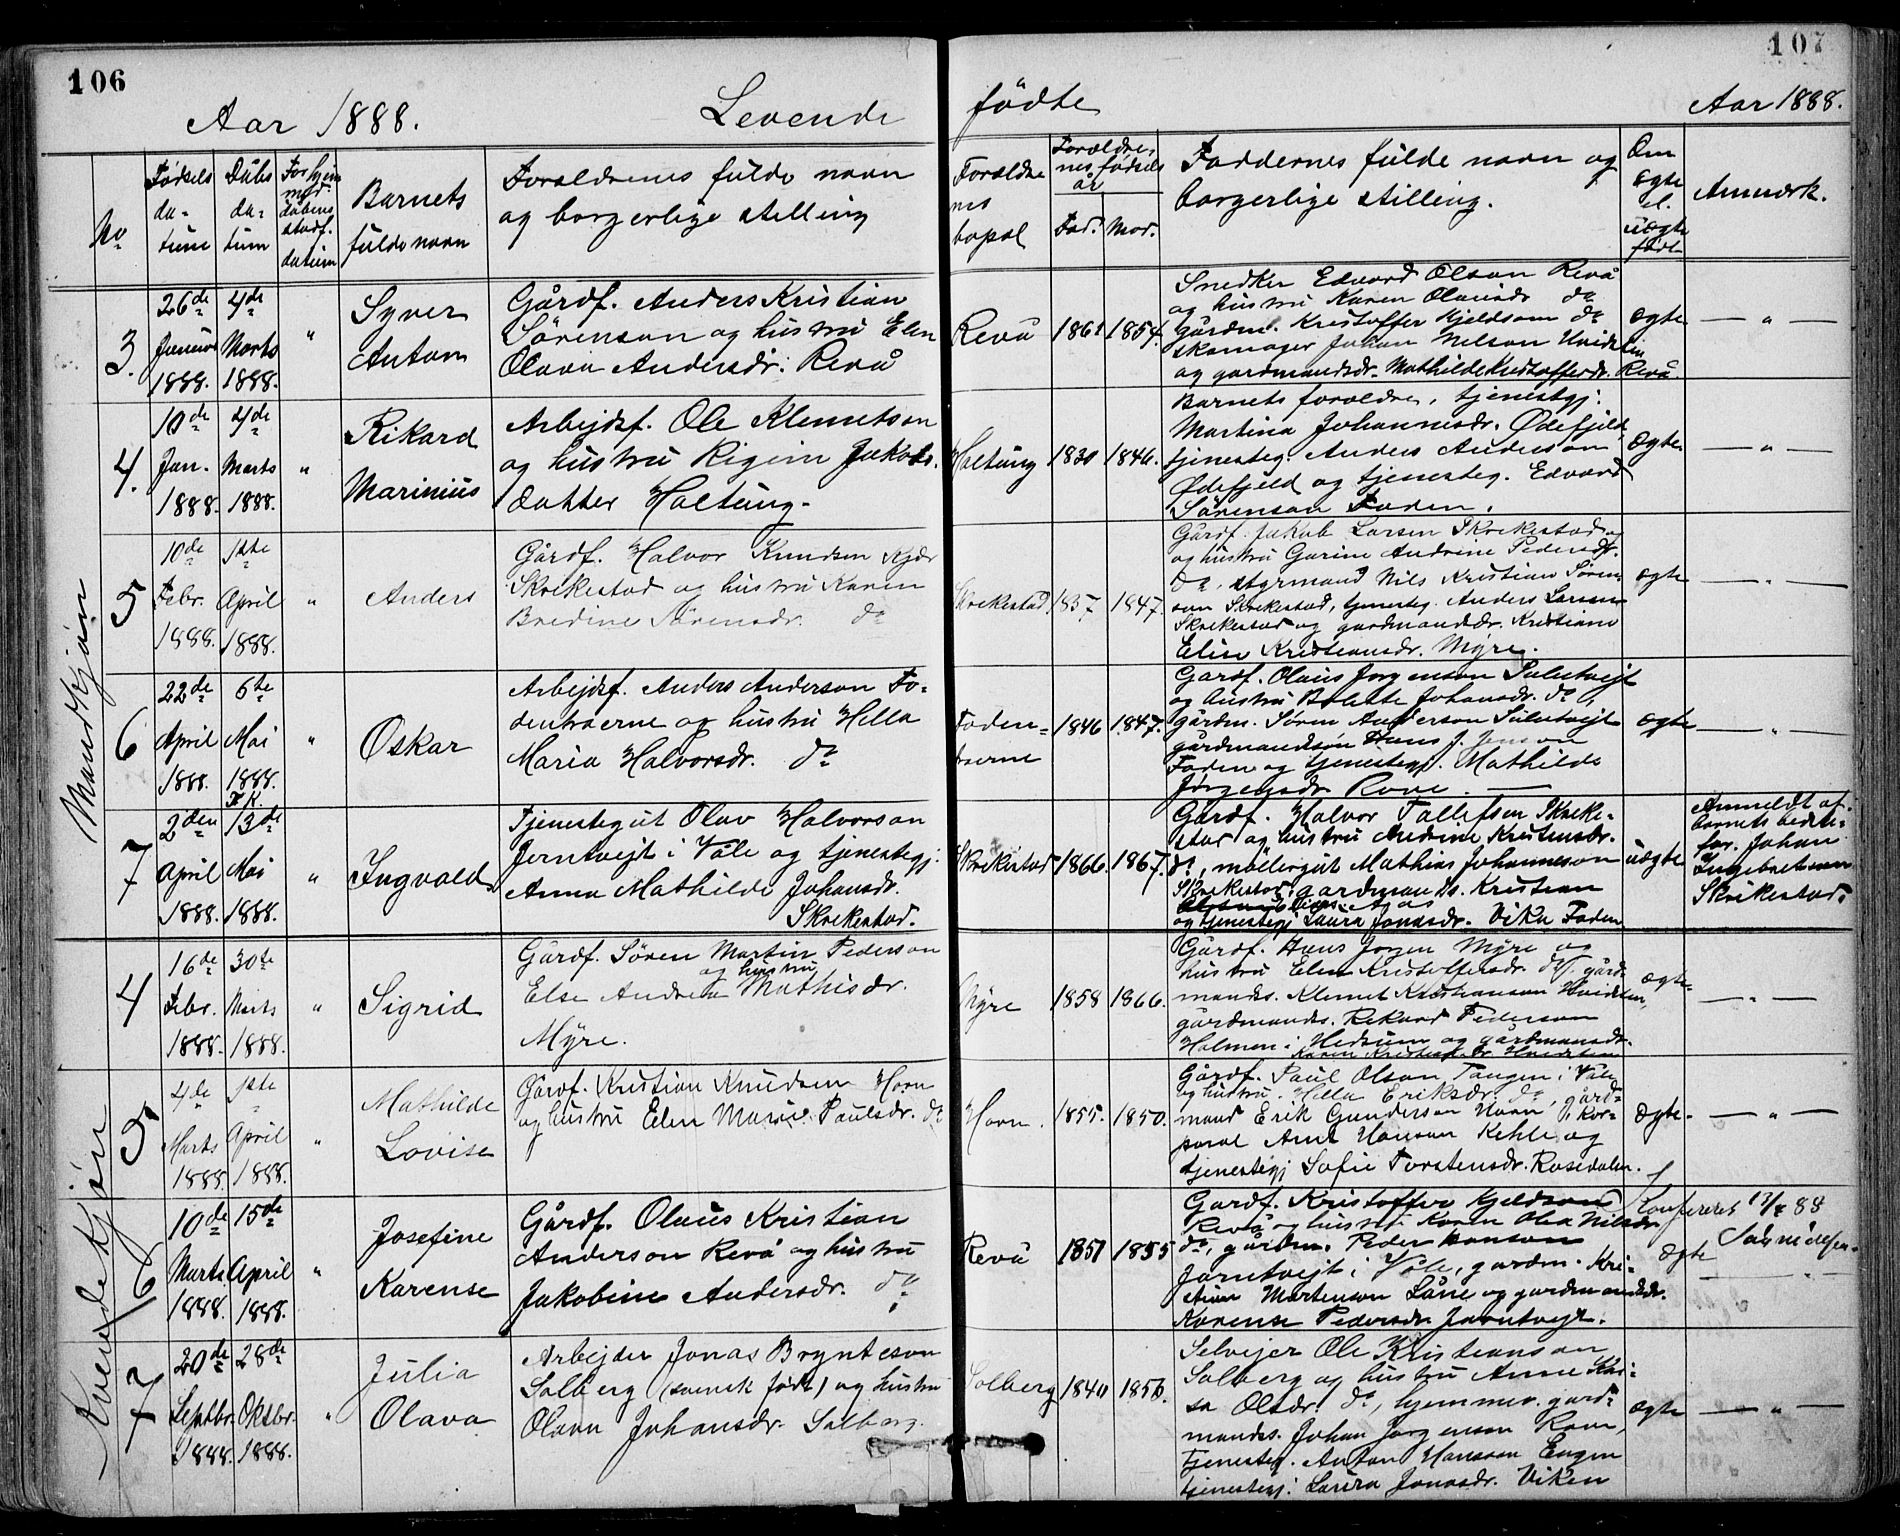 106
107
Aar 1888.
Levende
fødte
Aar 1888.
No
Fødsels
da-
tum
Dåbs
da-
tum
Forhjem
med
dåbens
stadf.
datum
Barnets
fulde navn
Forældrenes fulde navn
og borgerlige stilling
Forældre
nes
bopæl
Forældre,
nes fødsels
år
Fad. Mod.
Faddernes fulde navn og
borgerlige stilling.
Om
ægte
el.
uægte
født
Anmærk.
Mandkjøn
3.
26de
Januar
1888.
4de
Marts
1888.
"
Syver
Anton
Gårdf. Anders Kristian
Sörenson og hustru Elen
Olava Andersdr. Revå
Revå
1861
1854.
Snedker Edvard Olson Revå
og hustru Karen Olausdr do
Gårdm. Kristoffer Kjeldsom do
skomager Johan Nelson Hvidstin
og gardmandsdr. Mathilde Kristofferdr. Revå
ægte
— " —
4.
10de
Jan.
1888.
4de
Marts
1888.
"
Rikard
Marinius
Arbejdsf. Ole Klemetson
og hustru Rigem Jakobs.
datter Holtung.
Holtung
1830
1846.
Barnets forældre, tjenestgj.
Martina Johannesdr. Ødefjeld,
tjenesteg. Anders Anderson
Ødefjeld og tjenesteg. Edvard
Sörenson Foden.
ægte.
— " —
5
10de
Febr.
1888.
1ste
April
1888.
"
Anders
Gårdf. Halvor Knudsen Kjær
Skrekestad og hustru Karen
Bredine Sörensdr. do
Skrekestad
1837
1847.
Gårdf. Jakob Larsen Skrekestad og
og hustru Gurine Andrine Pedersdr.
do, styrmand Nils Kristian Sören-
son Skrekestad, tjenesteg. Anders Larsen
Skrekestad og gardmandsdr. Kristiane
Elise Kristiansdr. Myre.
ægte
— " —
6
22de
April
1888.
6te
Mai
1888.
F.K.
"
Oskar
Arbejdsf. Anders Anderson Fo-
dentraerne og hustru Hella
Maria Halvorsdr. do
Foden=
traerne
1846
1847.
Gardf. Olaus Jorgenson Suletvejt
og hustru Bolette Johansdr. do,
gårdm. Sören Anderson Suletvejt
gårdmandsön Hans J. Jenson
Foden og tjenestegj. Mathilde
Jørgensdr Rove. —
ægte
— " —
7
2den
April
1888.
13de
Mai
1888.
"
Ingvald
Tjenestegut Olav Halvorson
Jerntvejt i Våle og tjenestegj:
Anna Mathilde Johansdr.
Skrekestad.
Skrekestad
1866.
1867.
Gårdf. Halvor Tallefson Skreke-
stad og hustru Andrine Kristensdr.
do, møllergut Mathias Johanneson
Skrekestad, gardmands. Kristian
og tjenestegj Laura Jonasdr. Vika Foden
uægte
Anmeldt af
barnets bedste-
far. Johan
Ingebretson
Skrikestad.
Kvindekjøn
4
16de
Febr.
1888.
30te
Marts
1888.
"
Sigrid
Gårdf. Sören Martin Pederson
og hustru
Else Andrea Mathisdr.
Myre.
Myre
1858
1866.
Gårdf. Hans Jorgen Myre og
hustru Elen Kristoffersdr. do, gård-
mands. Klemet Kristianson Hvidsten,
gårdmands. Rikard Pederson
Holmen i Hedrum og gårdmansdr.
Karen Kristofdr Hvidsten
ægte.
— " —
5
4de
Marts
1888.
1ste
April
1888.
"
Mathilde
Lovise
Gårdf. Kristian Knudsen Horn
og hustru Elen Marie Paulsdr. do
Horn.
1855.
1850.
Gårdf. Paul Olson Tangen i Våle
og hustru. Hella Eriksdr. do, gård-
mand Erik Gunderson Horn, kor-
poral Arnt Hanson Kehle og
tjenestegj Sofie Torstensdr. Rosedalen.
ægte.
— " —
6
10de
Marts
1888.
15de
April
1888.
"
Josefine
Karense
Gårdf. Olaus Kristian
Anderson Revå og hustru
Jakobine Andersdr. do
Revå
1851
1855
Gardf. Kristoffer Kjeldson
Revå og hustru Karen Olea Nilsdr
do, gårdm. Peder Hanson
Jarntvejt i Våle, gardm. Kri-
stian Martenson Låne og gardmandsdr.
Karense Pedersdr Jarntvejt.
ægte
Konfereret 12/7 88
7
20de
Septbr.
1888.
28de
Oktbr.
1888.
"
Julia
Olava
Arbejder Jonas Brynteson
Solberg (svensk født) og hustru
Olava Johansdr. Solberg.
Solberg
1840
1856.
Selvejer Ole Kristianson
Solberg og hustru Anne Kai-
sa Olsdr. do, hjemmev. gard-
mands. Johan Jorgenson Rove,
Tjenesteg. Anton Hanson Engen
tjenestegj: Laura Jonasdr. Viken
ægte
— " —